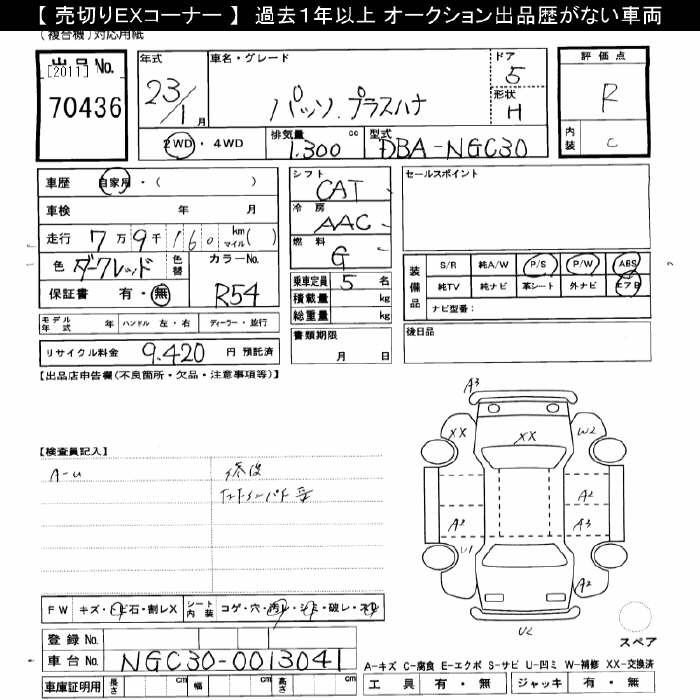 【 売切りEXコーナー 】 過去1年以上 オークション出品歴がない車両
(複合機)対応用紙
出品 No.
[2011]
70436
年式
23/1月
車名・グレード
パッソ プラスハナ
ドア
5
形状
H
評価点
R
内装
C
2WD・4WD
排気量
1.300 cc
型式
DBA-NGC30
車歴 自家用・( )
車検 年 月
走行 7万9千160 km マイル( )
色 ダークレッド
色替
カラーNo.
R54
保証書 有・無
シフト
CAT
冷房
AAC
燃料
G
乗車定員 5 名
積載量 kg
総重量 kg
セールスポイント
装備品
S/R 純A/W P/S P/W ABS
純TV 純ナビ 革シート 外ナビ エアB
ナビ型番:
モデル年式 年 ハンドル 左・右 ディーラー・並行
リサイクル料金 9.420 円 預託済
書類期限
月 日
後日品
【出品店申告欄(不良箇所・欠品・注意事項等)】
【検査員記入】
A-U
修復
A3
XX
XX
W2
A2
A2
A3
U1
A2
U2
FW キズ・トビ石・割レX
シート内装 コゲ・穴・汚レ・シミ・破レ・スレ
登録 No.
車台 No. NGC30-0013041
車庫証明用 長さ cm 幅 cm 高さ cm
スペア
A-キズ C-腐食 E-エクボ S-サビ U-凹ミ W-補修 XX-交換済
工具 有・無 ジャッキ 有・無